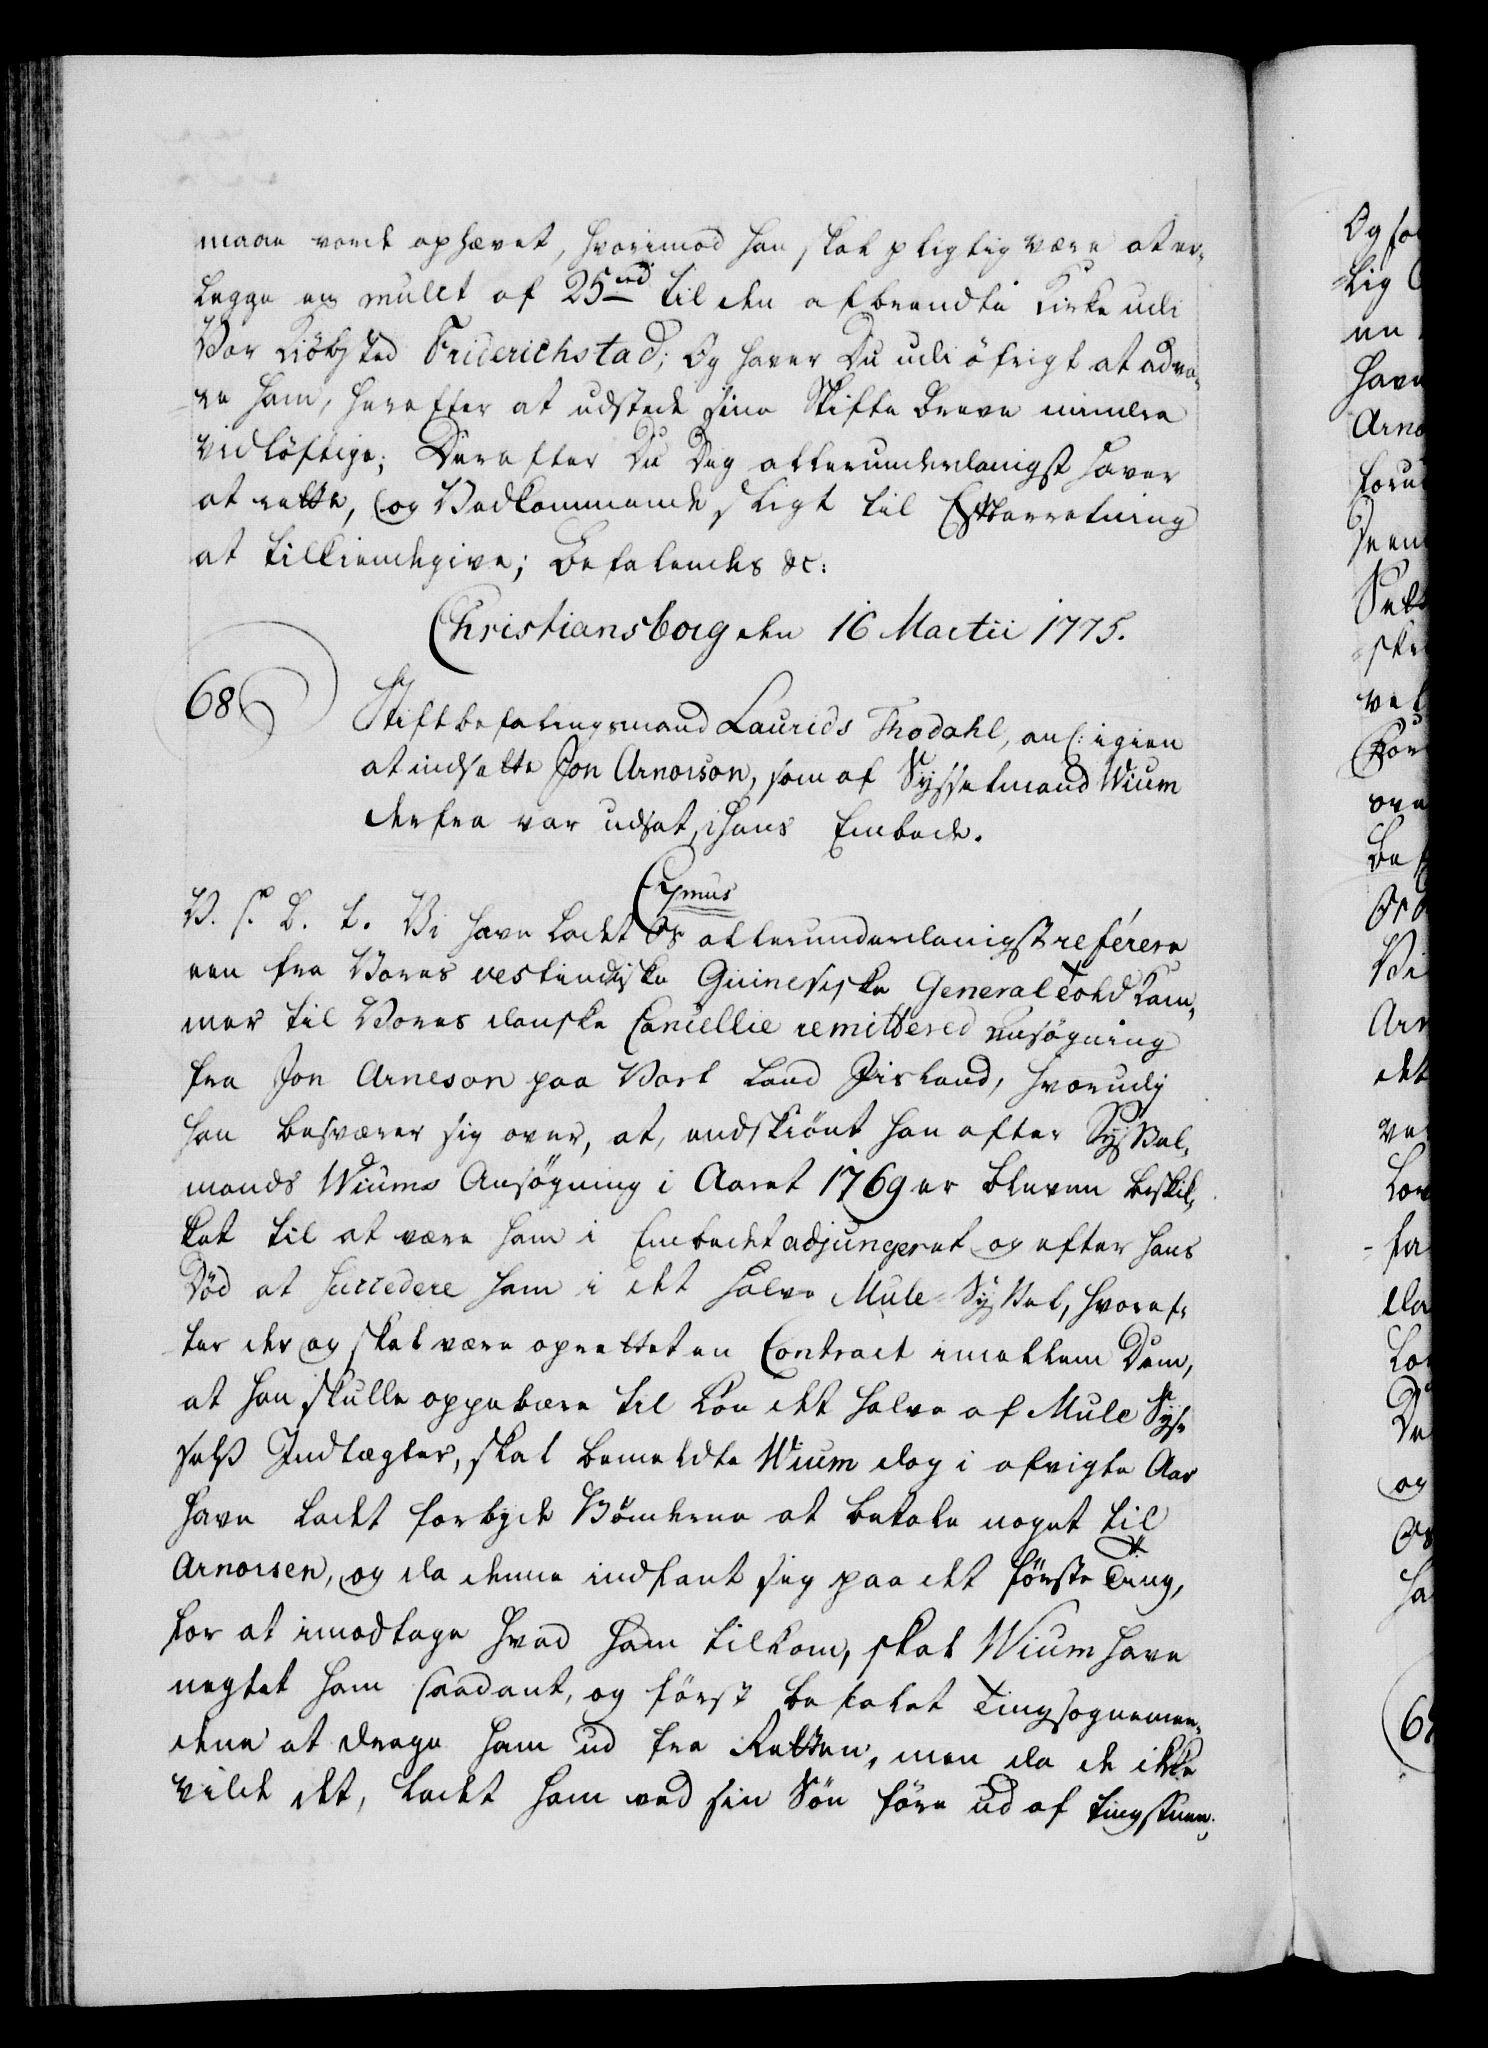 maae vorde ophævet, hvorimod han skal pligtig være at er-
legge en mulct af 25 rd til den afbrendte Kirke udi
Vor Kiöbsted Friderichstad; Og haver Du udi öfrigt at adva-
re ham, herefter at udstede sine Skifte Breve mindre
vidlöftige; Derefter Du Dig allerunderdanigst haver
at rette, og Vedkommende sligt til Efterretning
at tilkiendegive; Befalendes &c:
Christiansborg den 16 Martii 1775.
68
Stiftbefalingsmand Laurids Thodahl, anl: igien
at indsette Jon Arnorson, som af Sysselmand Wium
derfra var udsat, i hans Embede.
C 7mus
V. S. G. T. Vi have ladet Os allerunderdanigst referere
een fra Vores vestindiske Guineiske General Told Kam-
mer til Vores danske Cancellie remittered Ansögning
fra Jon Arneson paa Vort Land Jisland, hvorudj
han besværer sig over, at, endskiönt han efter Syssel-
mands Wiums Ansögning i Aaret 1769 er bleven beskik-
ket til at være ham i Embedet adjungeret og efter hans
Död at succedere ham i det halve Mule Syssel, hvoref-
ter der og skal være oprettet en Contract imellem Dem,
at han skulle oppebære til Lön det halve af Mule Sys-
sels Indtægter, skal bemeldte Wium dog i afvigte Aar
have ladet forbyde Bönderne at betale noget til
Arnorsen, og da denne indfant sig paa det förste Ting,
for at imodtage hvad ham tilkom, skal Wium have
negtet ham saadant, og först befalet Tingsognemæn-
dene at drage ham ud fra Retten, men da de ikke
vilde det, ladet ham ved sin Sön före ud af Tingstuen.